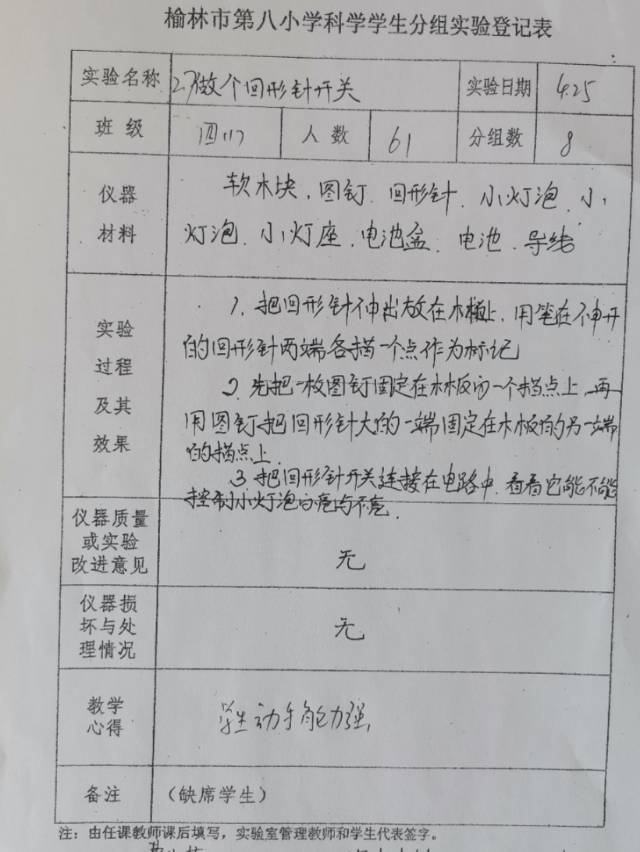 榆林市第八小学科学学生分组实验登记表
实验名称 27做个回形针开关 实验日期 4.25
班 级 四(1) 人 数 61 分组数 8
仪器 材料 软木块、图钉、回形针、小灯泡、小
灯泡、小灯座、电池盒、电池、导线
实验 过程 及其 效果 1、把回形针不伸出放在木板上,用笔在不伸开
的回形针两端各描一个点作为标记
2、先把一枚图钉固定在木板的一个描点上,再
用图钉把回形针大的一端固定在木板的另一端
的描点上.
3、把回形针开关连接在电路中,看看它能不能
控制小灯泡的亮与不亮.
仪器质量
或实验
改进意见 无
仪器损
坏与处
理情况 无
教学
心得 学生动手能力强,
备注 (缺席学生)
注:由任课教师课后填写,实验室管理教师和学生代表签字。